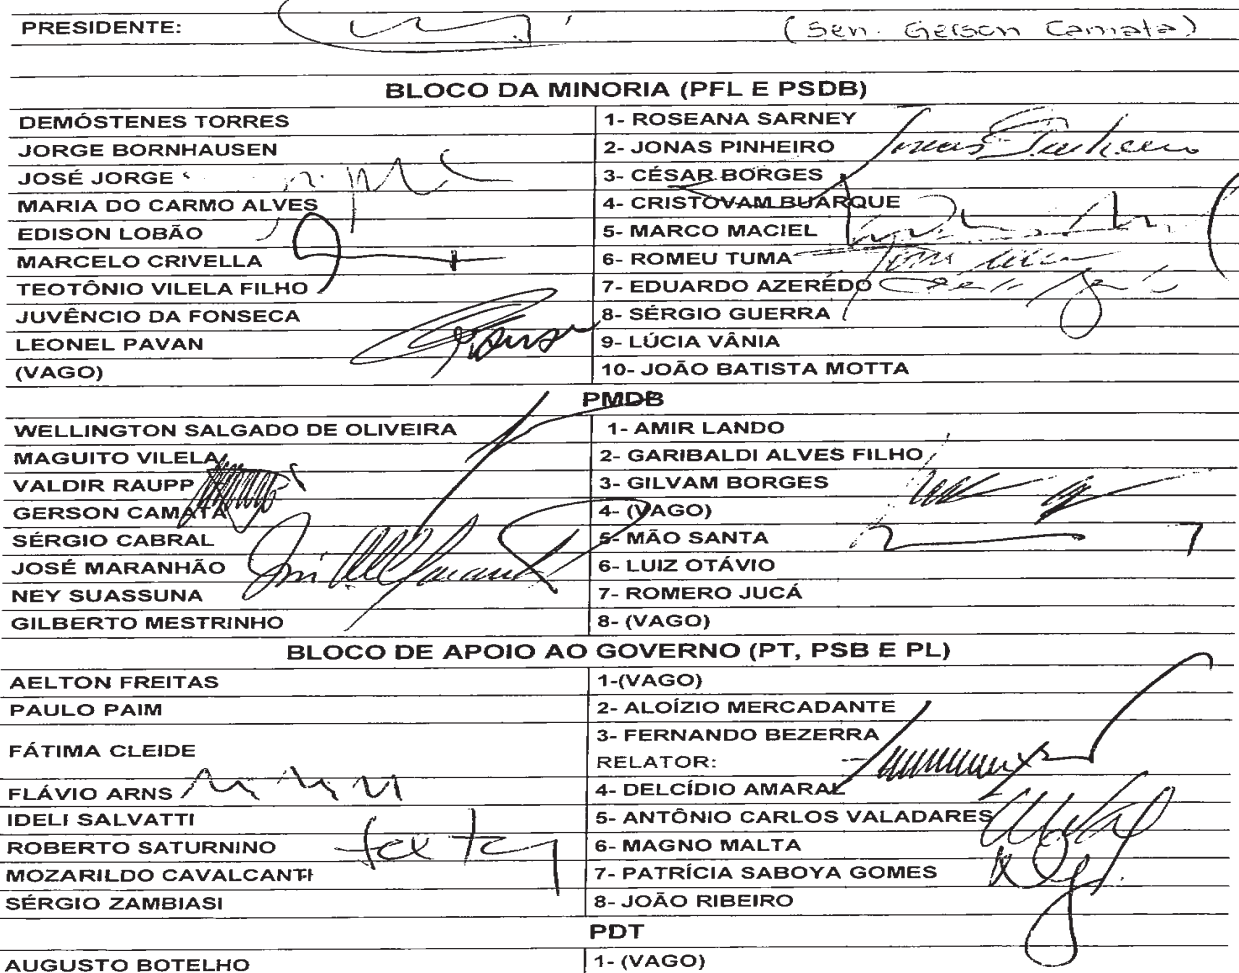 PRESIDENTE: (Sen. Gerson Camata)
BLOCO DA MINORIA (PFL E PSDB)
DEMÓSTENES TORRES 1- ROSEANA SARNEY
JORGE BORNHAUSEN 2- JONAS PINHEIRO Jonas Pinheiro
JOSÉ JORGE 3- CÉSAR BORGES
MARIA DO CARMO ALVES 4- CRISTOVAM BUARQUE
EDISON LOBÃO 5- MARCO MACIEL
MARCELO CRIVELLA 6- ROMEU TUMA
TEOTÔNIO VILELA FILHO 7- EDUARDO AZEREDO
JUVÊNCIO DA FONSECA 8- SÉRGIO GUERRA
LEONEL PAVAN 9- LÚCIA VÂNIA
(VAGO) 10- JOÃO BATISTA MOTTA
PMDB
WELLINGTON SALGADO DE OLIVEIRA 1- AMIR LANDO
MAGUITO VILELA 2- GARIBALDI ALVES FILHO
VALDIR RAUPP 3- GILVAM BORGES
GERSON CAMATA 4- (VAGO)
SÉRGIO CABRAL 5- MÃO SANTA
JOSÉ MARANHÃO 6- LUIZ OTÁVIO
NEY SUASSUNA 7- ROMERO JUCÁ
GILBERTO MESTRINHO 8- (VAGO)
BLOCO DE APOIO AO GOVERNO (PT, PSB E PL)
AELTON FREITAS 1-(VAGO)
PAULO PAIM 2- ALOÍZIO MERCADANTE
FÁTIMA CLEIDE 3- FERNANDO BEZERRA
RELATOR:
FLÁVIO ARNS 4- DELCÍDIO AMARAL
IDELI SALVATTI 5- ANTÔNIO CARLOS VALADARES
ROBERTO SATURNINO 6- MAGNO MALTA
MOZARILDO CAVALCANTI 7- PATRÍCIA SABOYA GOMES
SÉRGIO ZAMBIASI 8- JOÃO RIBEIRO
PDT
AUGUSTO BOTELHO 1- (VAGO)